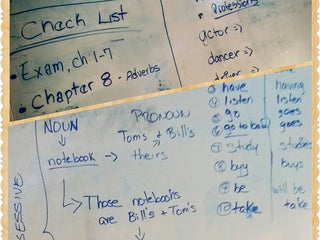 Chach List
• Exam, ch 1-7
• Chapter 8 - Adverbs
• Professions
actor =>
dancer =>
driver =>
NOUN
notebook →
↳ Those notebooks
are Bill's + Tom's
PRONOUN
Tom's + Bill's
theirs
③ have having
④ listen listen
⑤ go goes
⑥ go to bed goes
⑦ study studies
⑧ buy buys
⑨ be will be
⑩ take takes